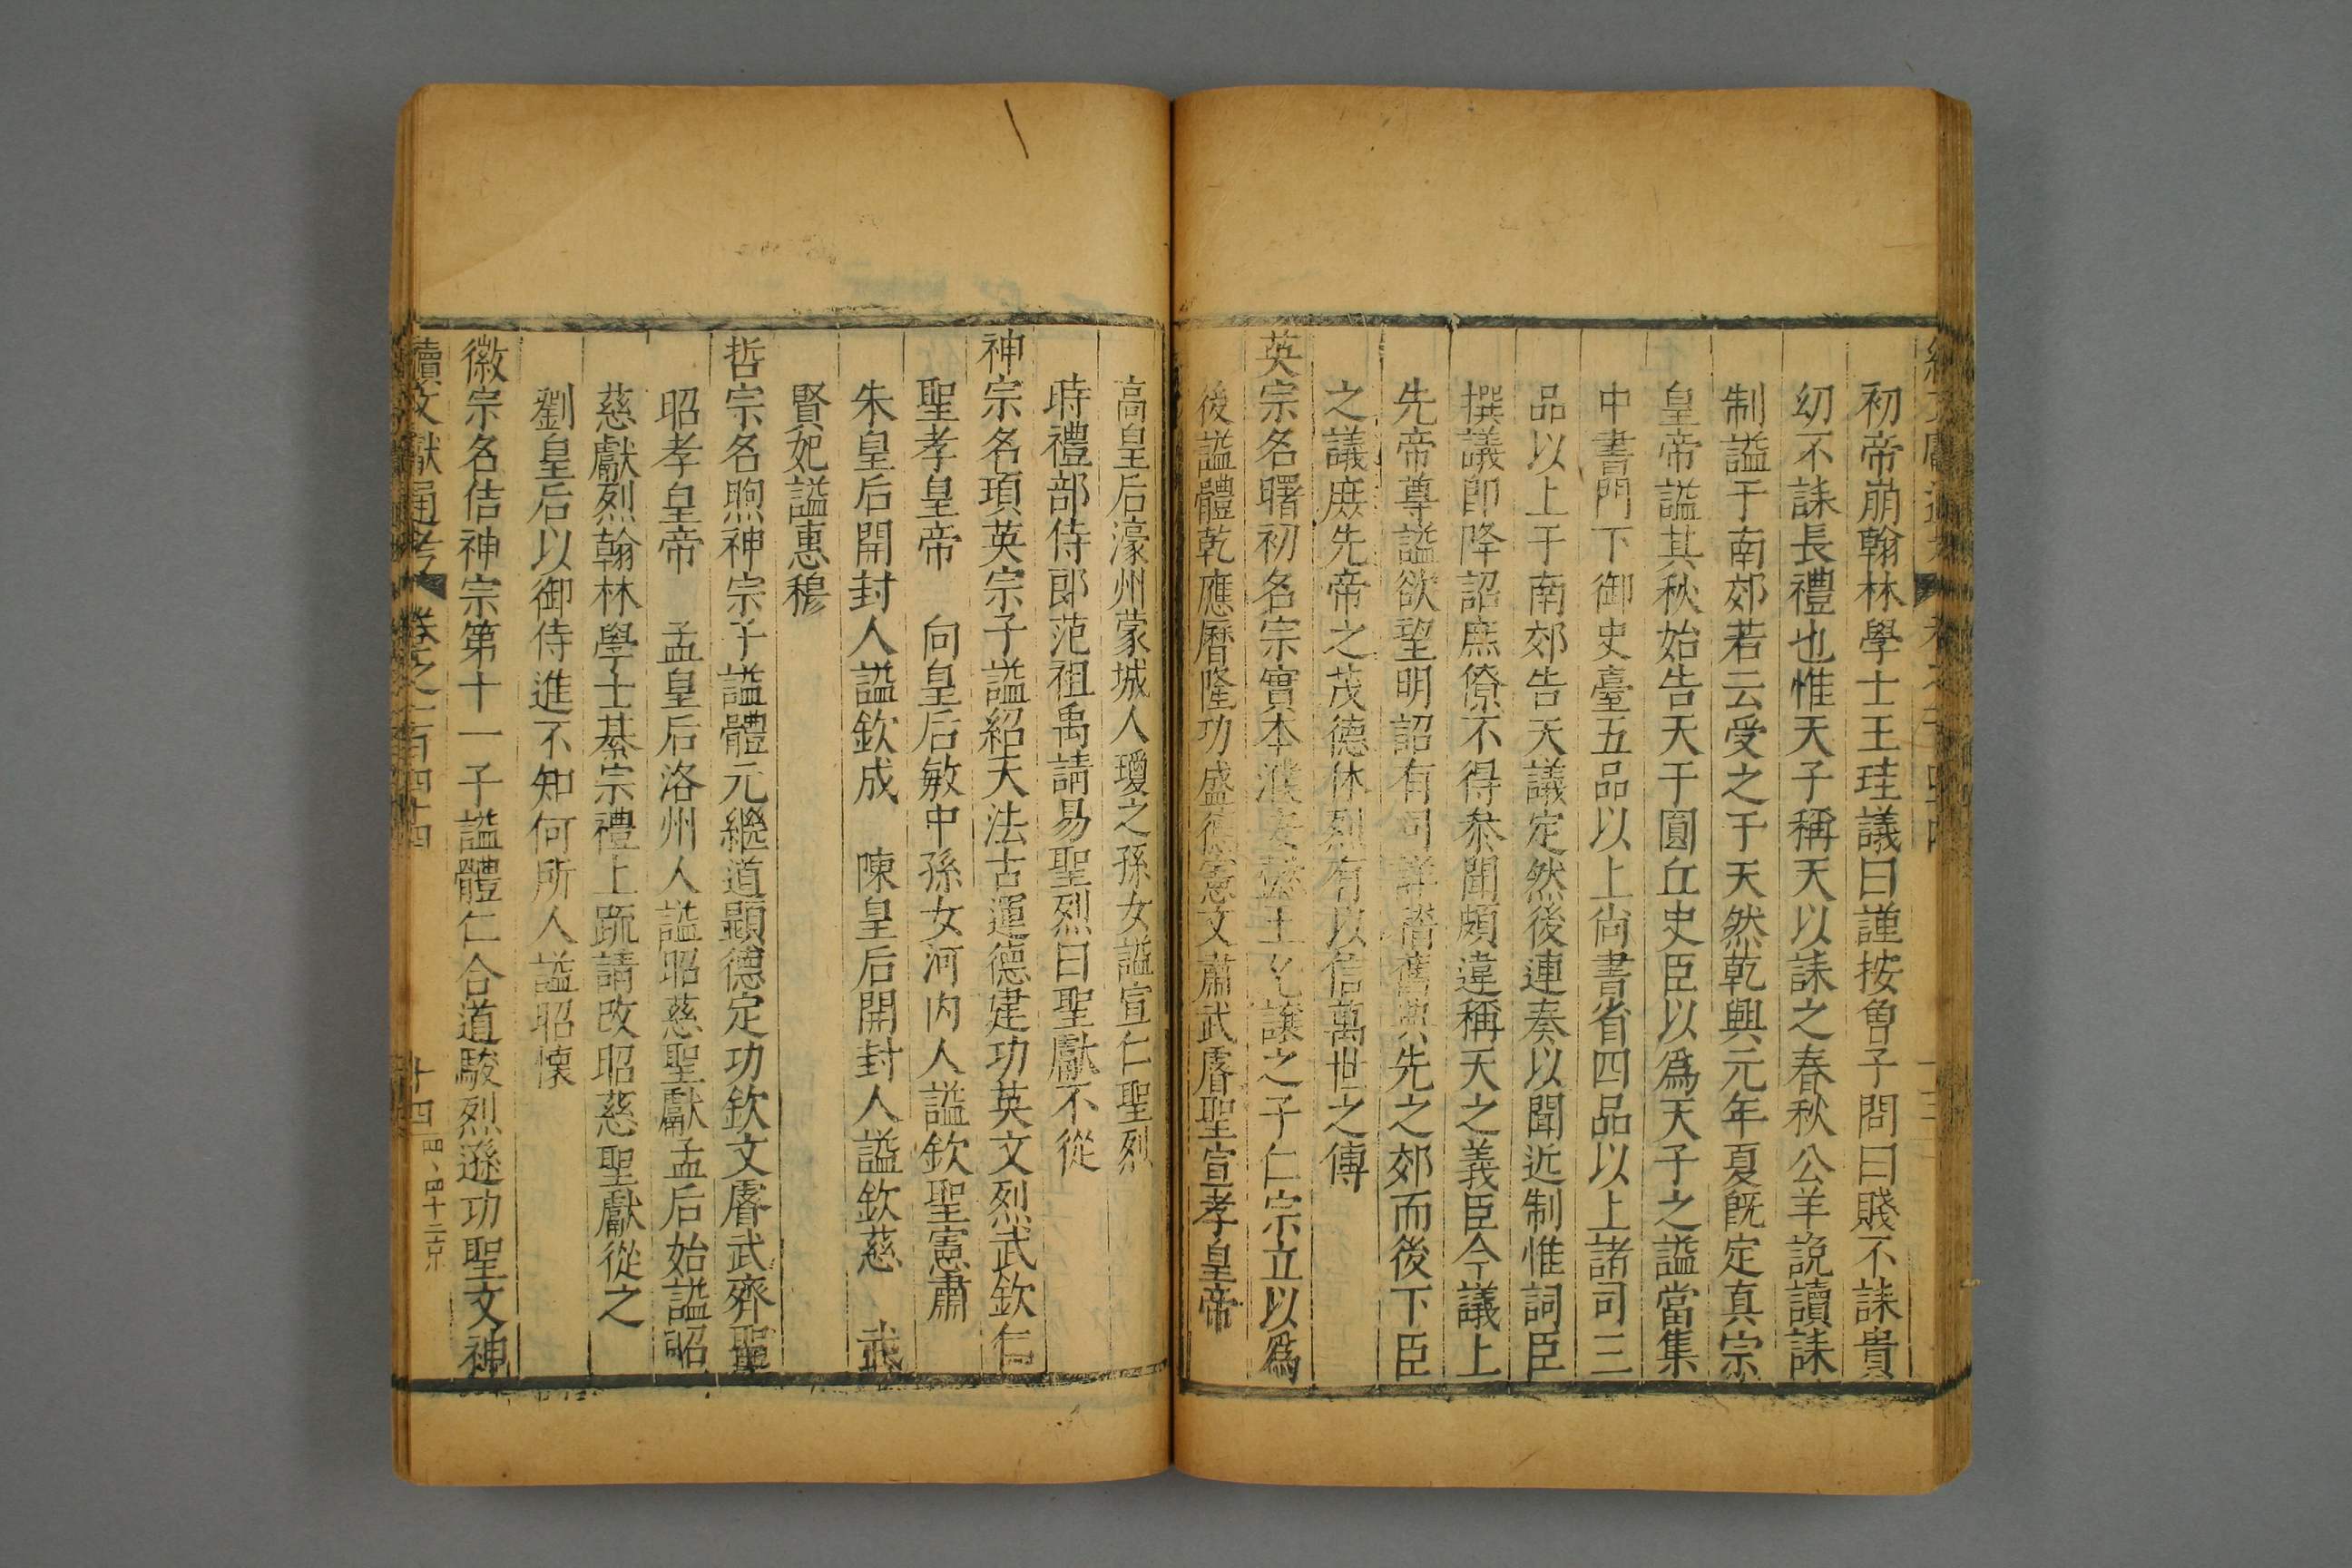 初帝崩翰林學士王珪議曰謹按曾子問曰賤不誄貴
幼不誄長禮也惟天子稱天以誄之春秋公羊說讀誄
制謚于南郊若云受之于天然乾興元年夏旣定真宗
皇帝謚其秋始告天于圓丘史臣以爲天子之謚當集
中書門下御史臺五品以上尚書省四品以上諸司三
品以上于南郊告天議定然後連奏以聞近制惟詞臣
撰議卽降詔庶僚不得叅聞頗違稱天之義臣今議上
先帝尊謚欲望明詔有司詳稽舊典先之郊而後下臣
之議庶先帝之茂德休烈有以信萬世之傳
英宗名曙初名宗實本濮安懿王允讓之子仁宗立以爲
後謚體乾應曆隆功盛德憲文肅武睿聖宣孝皇帝
高皇后濠州蒙城人瓊之孫女謚宣仁聖烈
時禮部侍郎范祖禹請易聖烈曰聖獻不從
神宗名頊英宗子謚紹天法古運德建功英文烈武欽仁
聖孝皇帝　向皇后敏中孫女河内人謚欽聖憲肅
朱皇后開封人謚欽成　陳皇后開封人謚欽慈　武
賢妃謚惠穆
哲宗名煦神宗子謚體元繼道顯德定功欽文睿武齊聖
昭孝皇帝　孟皇后洛州人謚昭慈聖獻孟后始謚昭
慈獻烈翰林學士綦宗禮上疏請改昭慈聖獻從之
劉皇后以御侍進不知何所人謚昭懐
徽宗名佶神宗第十一子謚體仁合道駿烈遜功聖文神
續文獻通考　卷之一百四十四　十四